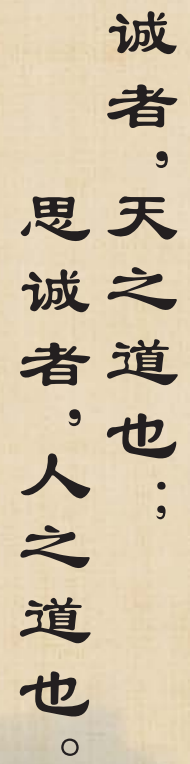 诚者，天之道也；
思诚者，人之道也。